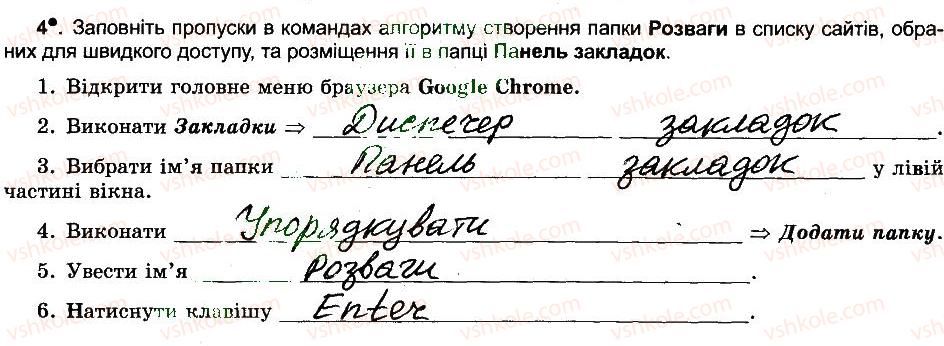 4●. Заповніть пропуски в командах алгоритму створення папки Розваги в списку сайтів, обра-
них для швидкого доступу, та розміщення її в папці Панель закладок.
1. Відкрити головне меню браузера Google Chrome.
2. Виконати Закладки ⇒ Диспечер закладок.
3. Вибрати ім’я папки Панель закладок у лівій
частині вікна.
4. Виконати Упорядкувати ⇒ Додати папку.
5. Увести ім’я Розваги.
6. Натиснути клавішу Enter.